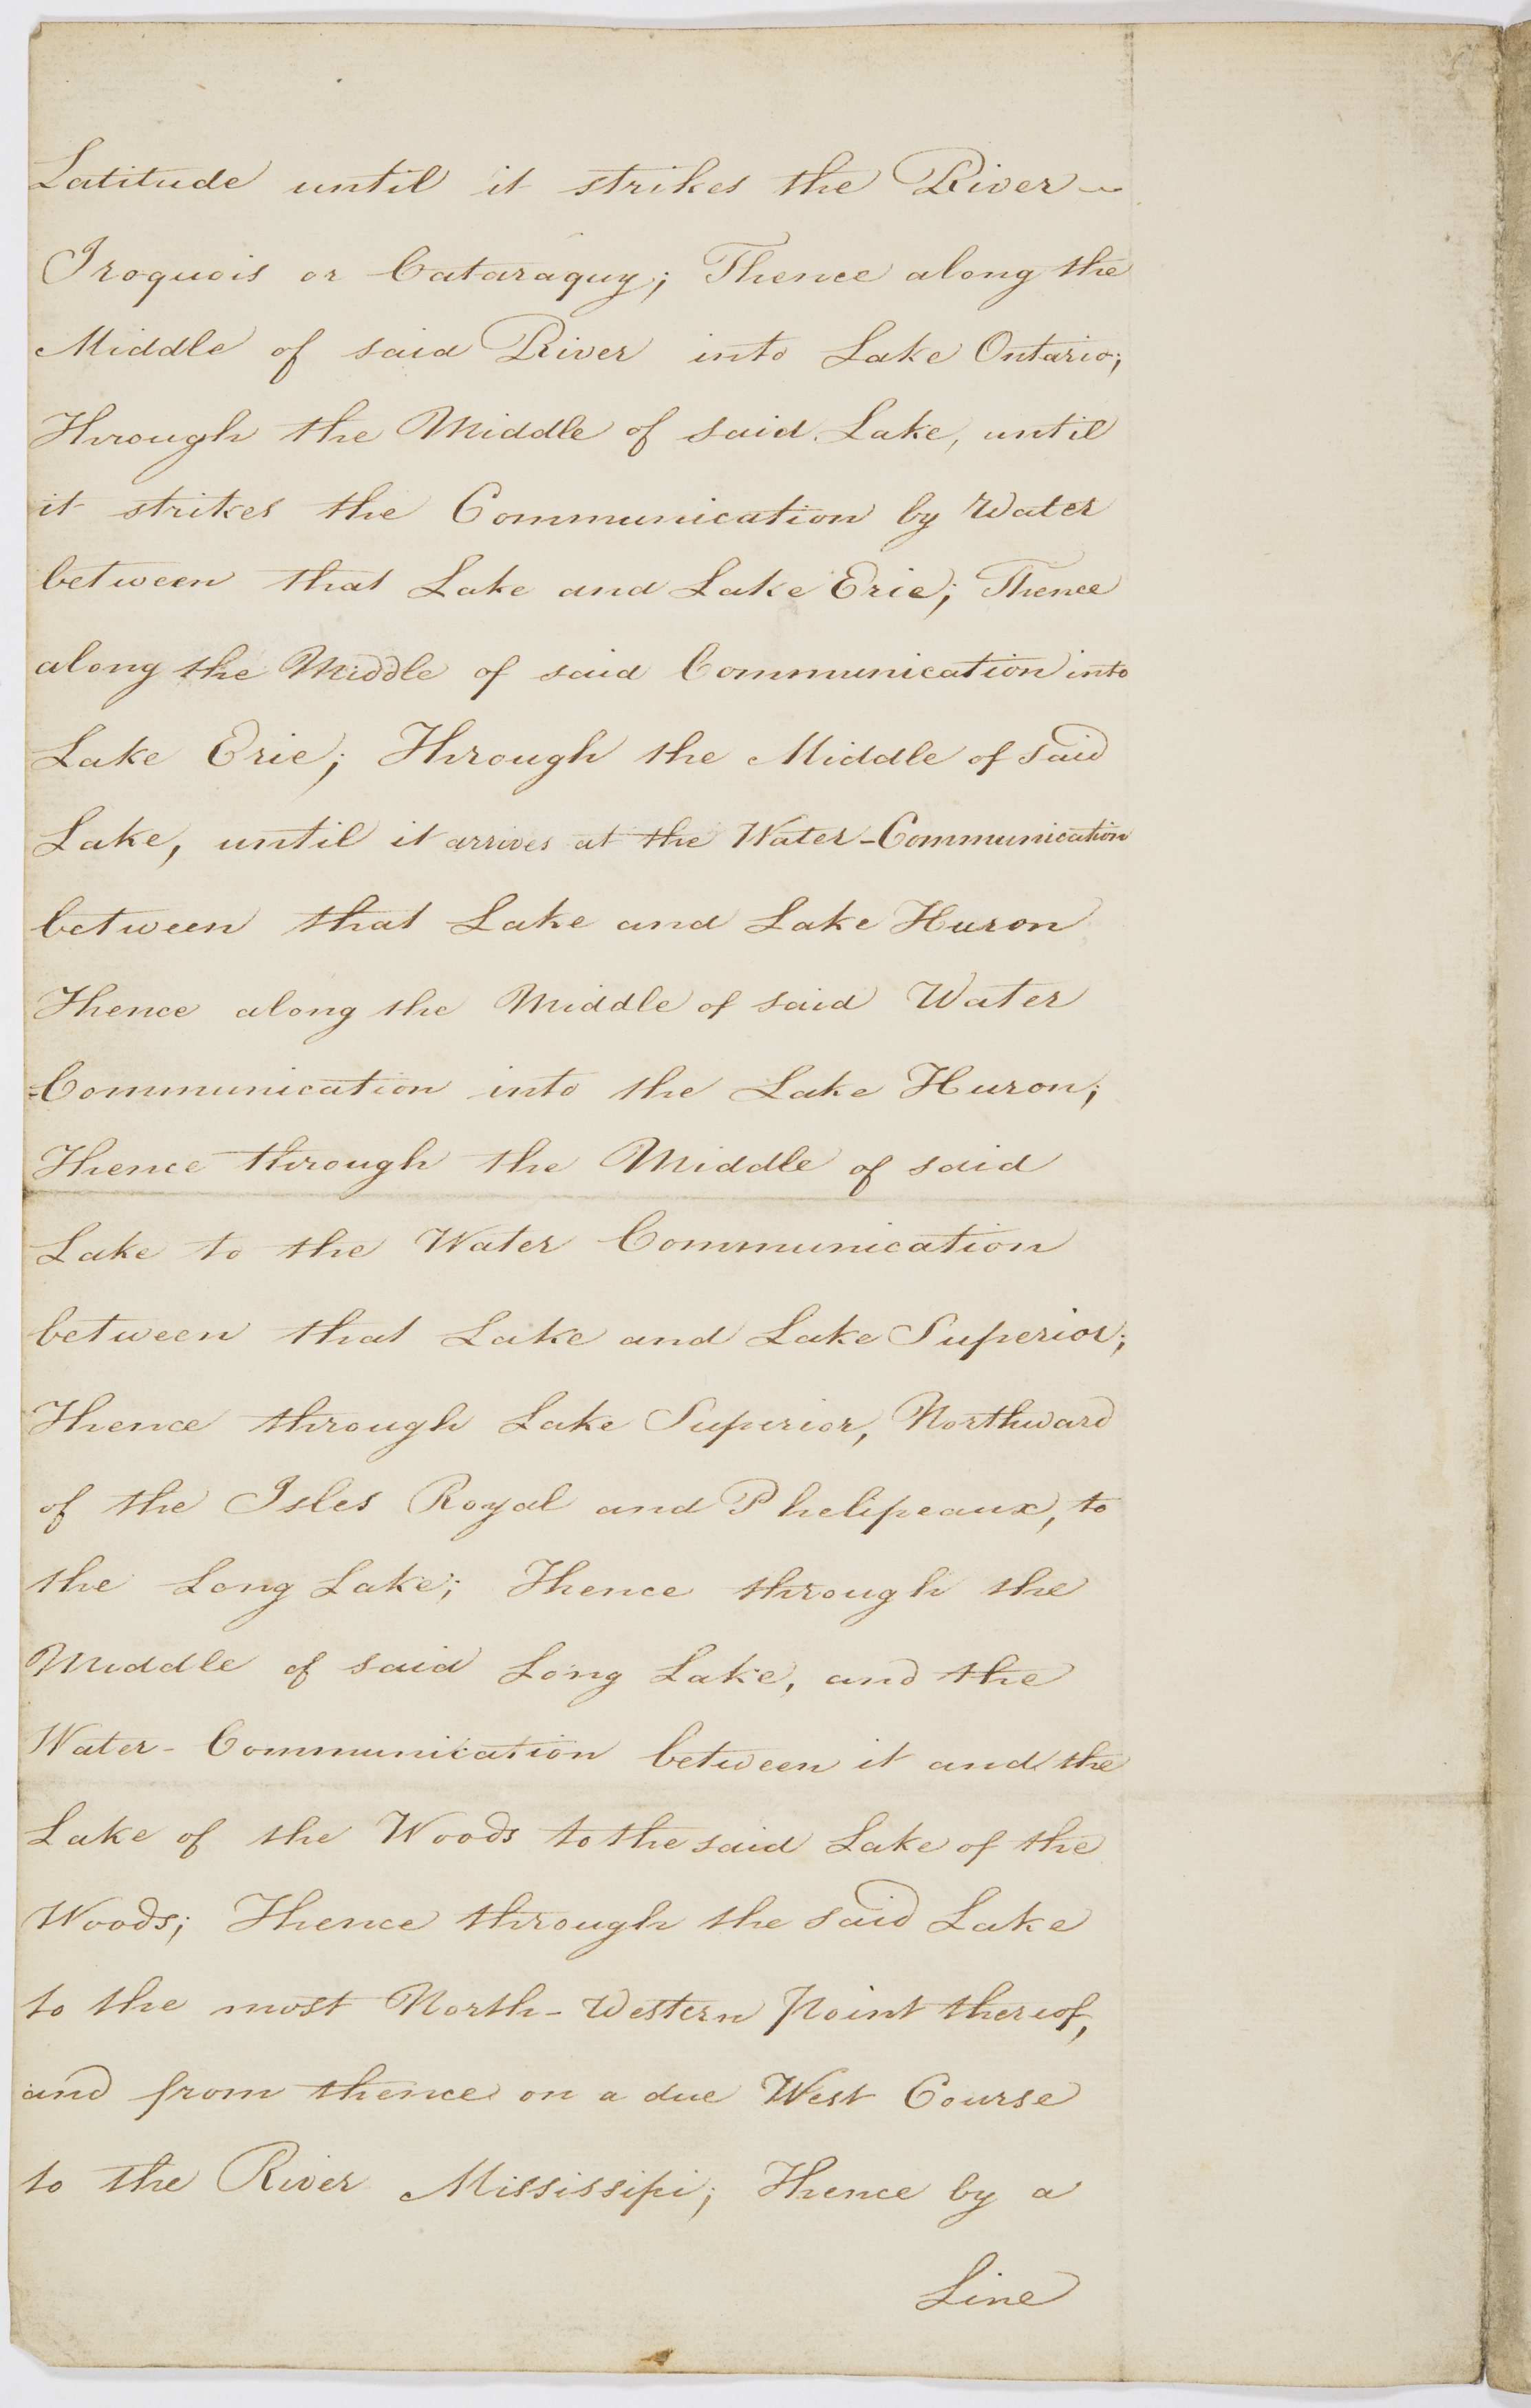 Latitude until it strikes the River
Iroquois or Cataraquy; Thence along the
Middle of said River into Lake Ontario;
Through the Middle of said Lake, until
it strikes the Communication by Water
between that Lake and Lake Erie; Thence
along the Middle of said Communication into
Lake Erie; Through the Middle of said
Lake, until it arrives at the Water-Communication
between that Lake and Lake Huron
Thence along the Middle of said Water
-Communication into the Lake Huron;
Thence through the Middle of said
Lake to the Water Communication
between that Lake and Lake Superior;
Thence through Lake Superior, Northward
of the Isles Royal and Phelipeaux, to
the Long Lake; Thence through the
Middle of said Long Lake, and the
Water-Communication between it and the
Lake of the Woods to the said Lake of the
Woods; Thence through the said Lake
to the most North-Western Point thereof,
and from thence on a due West Course
to the River Mississipi; Thence by a
Line